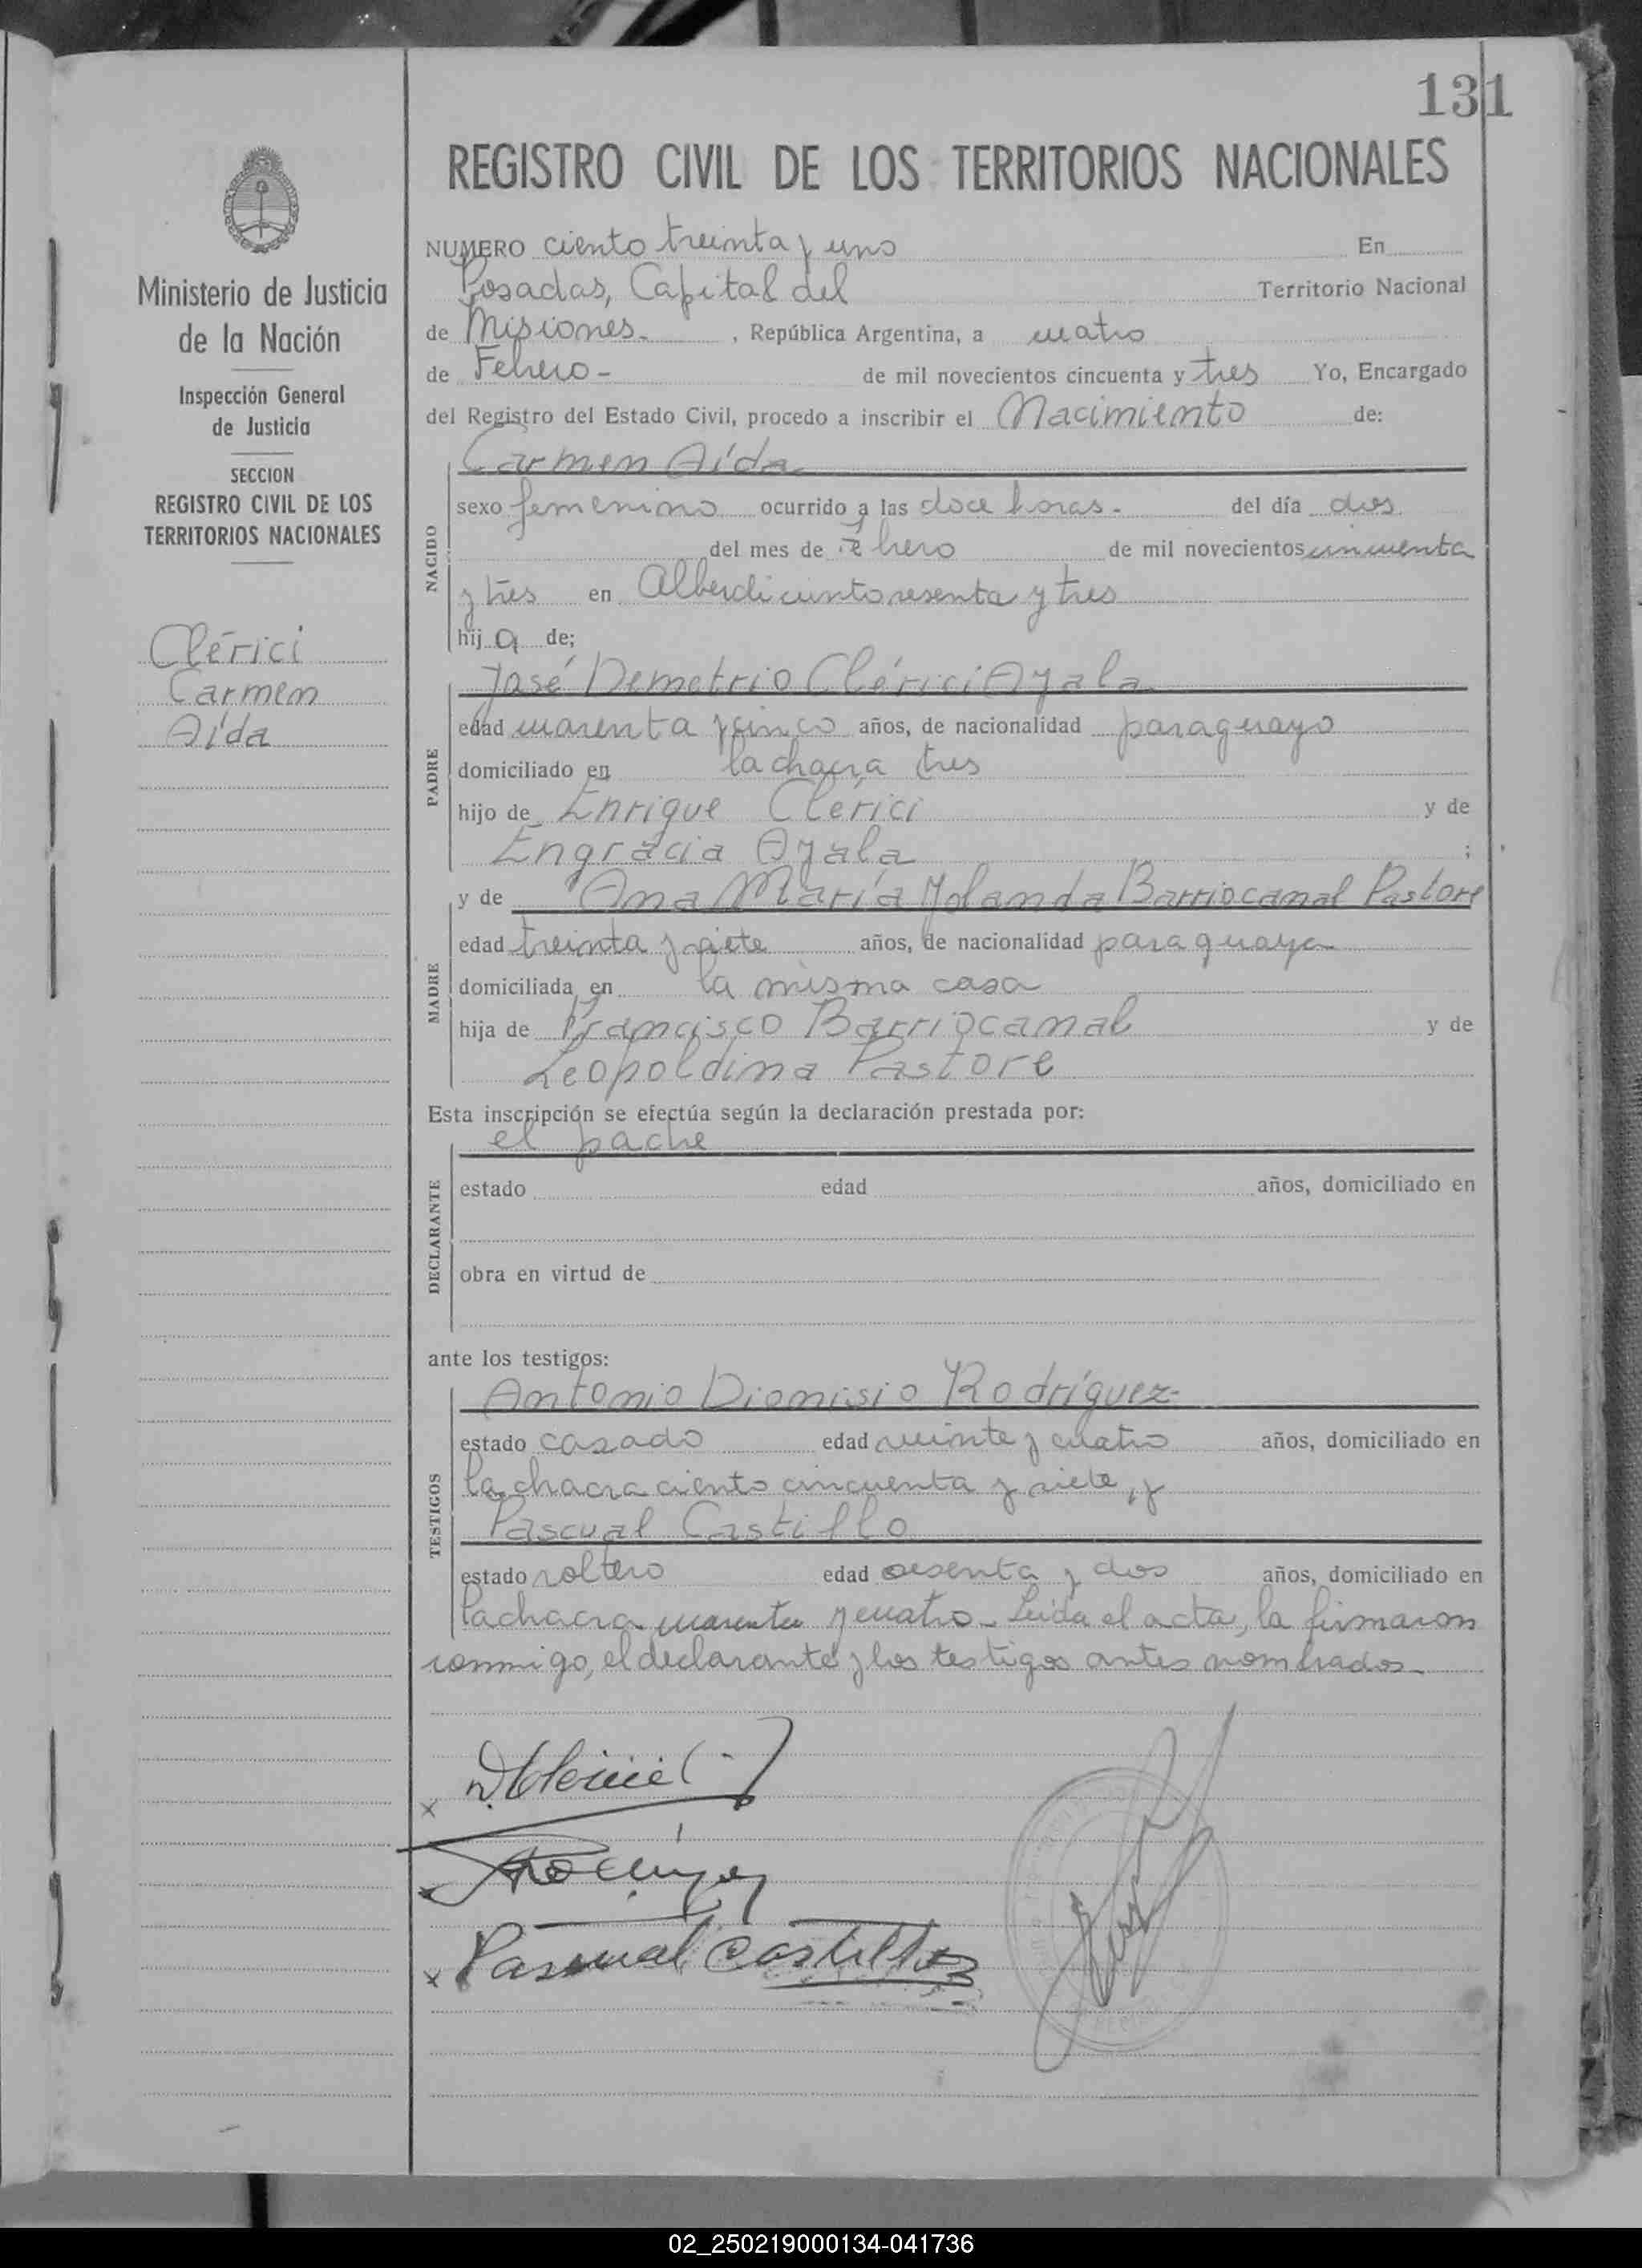 131
REGISTRO CIVIL DE LOS TERRITORIOS NACIONALES
Ministerio de Justicia
de la Nación
Inspección General
de Justicia
SECCION
REGISTRO CIVIL DE LOS
TERRITORIOS NACIONALES
Clérici
Carmen
Aída
NUMERO ciento treinta y uno En
Posadas, Capital del Territorio Nacional
de Misiones. , República Argentina, a cuatro
de Febrero - de mil novecientos cincuenta y tres Yo, Encargado
del Registro del Estado Civil, procedo a inscribir el Nacimiento de:
Carmen Aída
NACIDO
sexo femenino ocurrido a las doce horas - del día dos
del mes de Febrero de mil novecientos cincuenta
y tres en Alberdi ciento sesenta y tres
hij a de:
José Demetrio Clérici Ayala
PADRE
edad cuarenta y cinco años, de nacionalidad paraguayo
domiciliado en la chacra tres
hijo de Enrique Clérici y de
Engracia Ayala ;
y de Ana María Yolanda Barriocanal Pastore
MADRE
edad treinta y siete años, de nacionalidad paraguaya
domiciliada en la misma casa
hija de Francisco Barriocanal y de
Leopoldina Pastore
Esta inscripción se efectúa según la declaración prestada por:
el padre
DECLARANTE
estado edad años, domiciliado en
obra en virtud de
ante los testigos:
Antonio Dionisio Rodríguez-
TESTIGOS
estado casado edad veinte y cuatro años, domiciliado en
la chacra ciento cincuenta y siete, y
Pascual Castillo
estado soltero edad sesenta y dos años, domiciliado en
la chacra cuarenta y cuatro - Leída el acta, la firmaron
conmigo, el declarante y los testigos antes nombrados -
Pascual Castillo
02_250219000134-041736